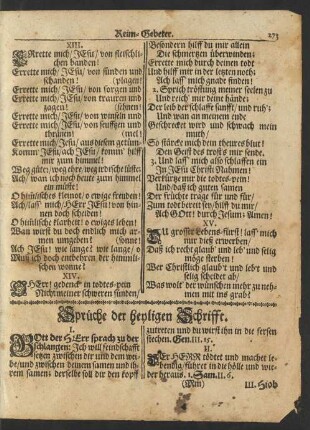 Reim-Gebeter. 273
XIII.
ERrette mich/ JEsu/ von fleischli-
chen banden!
Errette mich/ JEsu/ von sünden und
schanden! (plagen)
Errette mich/ JEsu/ von sorgen und
Errette mich/ JEsu/ von trauren und
zagen! (sehnen)
Errette mich/ JEsu/ von winseln und
Errette mich/ JEsu/ von seufftzen und
thränen! (mel)
Errette mich/ Jesu/ aus diesem getüm-
Komm/ JEsu/ ach JEsu/ komm/ hilff
mir zum himmel!
Weg güter/ weg ehre/ weg irdische lüste!
Ach/ wan ich noch heute zum himmel
ein müste!
O himmlisches kleinot/ o ewige freuden!
Ach/ lass' mich/ HErr JEsu/ von hin-
nen doch scheiden!
O himmlische klarheit/ o ewigs leben!
Wan wirst du doch endlich mich ar-
men umgeben! (sonne)
Ach JEsu! wie lange? wie lange/ o
Muß ich doch entbehren der himmli-
schen wonne?
XIV.
HErr/ gedenck' in todtes-pein
Nicht meiner schweren sünden/
Besondern hilff du mir allein
Die schmertzen überwinden;
Errette mich durch deinen todt
Und hilff mir in der letzten noth;
Ach lass' mich gnade finden!
2. Sprich tröstung meiner seelen zu
Und reich' mir deine hände;
Der leib der schlaffe sanfft/ und ruh/
Und wan an meinem ende
Geschrecket wird und schwach mein
muth/
So stärcke mich dein theures blut/
Den Geist des trosts mir sende.
3. Und lass' mich also schlaffen ein
In JEsu Christi Nahmen!
Vertreibe mir die todtes-pein/
Und/ daß ich guten samen
Der früchte trage für und für/
Zum todt bereit sey/ hilff du mir/
Ach GOtt! durch Jesum: Amen!
XV.
DU grosser Lebens-fürst! lass' mich
nur dieß erwerben/
Daß ich recht glaub' und leb' und selig
möge sterben!
Wer Christlich glaubt und lebt und
selig scheidet ab/
Was wolt' der wünschen mehr zu neh-
men mit ins grab?
Sprüche der heyligen Schrifft.
I.
GOtt der HErr sprach zu der
schlangen: Ich will feindschafft
setzen zwischen dir und dem wei-
be/ und zwischen deinem samen und ih-
rem samen; derselbe soll dir den kopff
zutreten und du wirst ihn in die fersen
stechen. Gen. III. 15.
II.
Der HERR tödtet und machet le-
bendig/ führet in die hölle und wie-
der heraus. 1. Sam. II. 6.
(Mm) III. Hiob